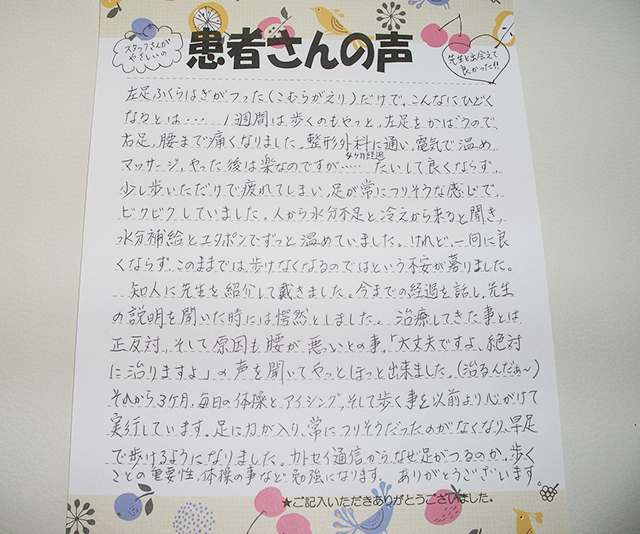 スタッフさんが
やさしいの
患者さんの声
先生と出会えて
良かった!!
左足ふくらはぎがつった(こむらがえり)だけで、こんなにひどく
なるとは…… 1週間は歩くのもやっと、左足をかばうので、
右足、腰まで痛くなりました。整形外科に通い、電気で温め、
4ヶ月経過
マッサージ、やった後は楽なのですが…… たいして良くならず、
少し歩いただけで疲れてしまい、足が常につりそうな感じで、
ピクピクしていました。人から水分不足と冷えから来ると聞き、
水分補給とユタポンでずっと温めていました。けれど、一向に良
くならず、このままでは、歩けなくなるのではという不安が募りました。
知人に先生を紹介して戴きました。今までの経過を話し、先生
の説明を聞いた時には愕然としました。治療してきた事とは
正反対、そして原因も腰が悪いとの事、「大丈夫ですよ、絶対
に治りますよ」の声を聞いてやっとほっと出来ました。(治るんだぁ～)
それから3ヶ月、毎日の体操とアイシング、そして歩く事を以前より心がけて
実行しています。足に力が入り、常につりそうだったのがなくなり、早足
で歩けるようになりました。カトセイ通信からなぜ足がつるのか、歩く
ことの重要性、体操の事など勉強になります。ありがとうございます。
★ご記入いただきありがとうございました。